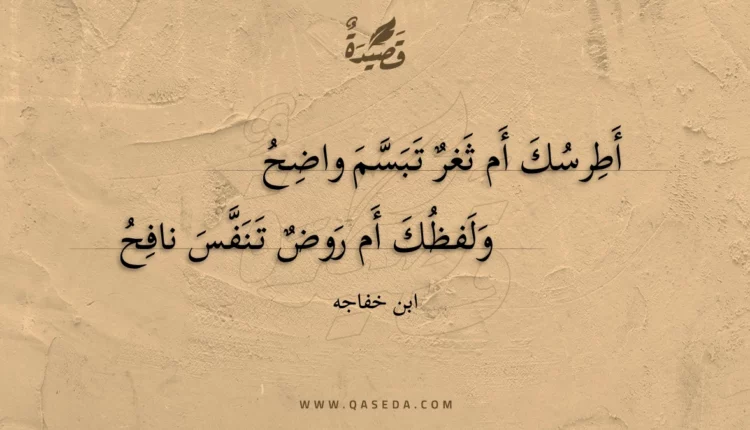 قَصِيدَةٌ
أَطِرسُكَ أَم ثَغرٌ تَبَسَّمَ واضِحُ
وَلَفظُكَ أَم رَوضٌ تَنَفَّسَ نافِحُ
ابن خفاجه
WWW.QASEDA.COM